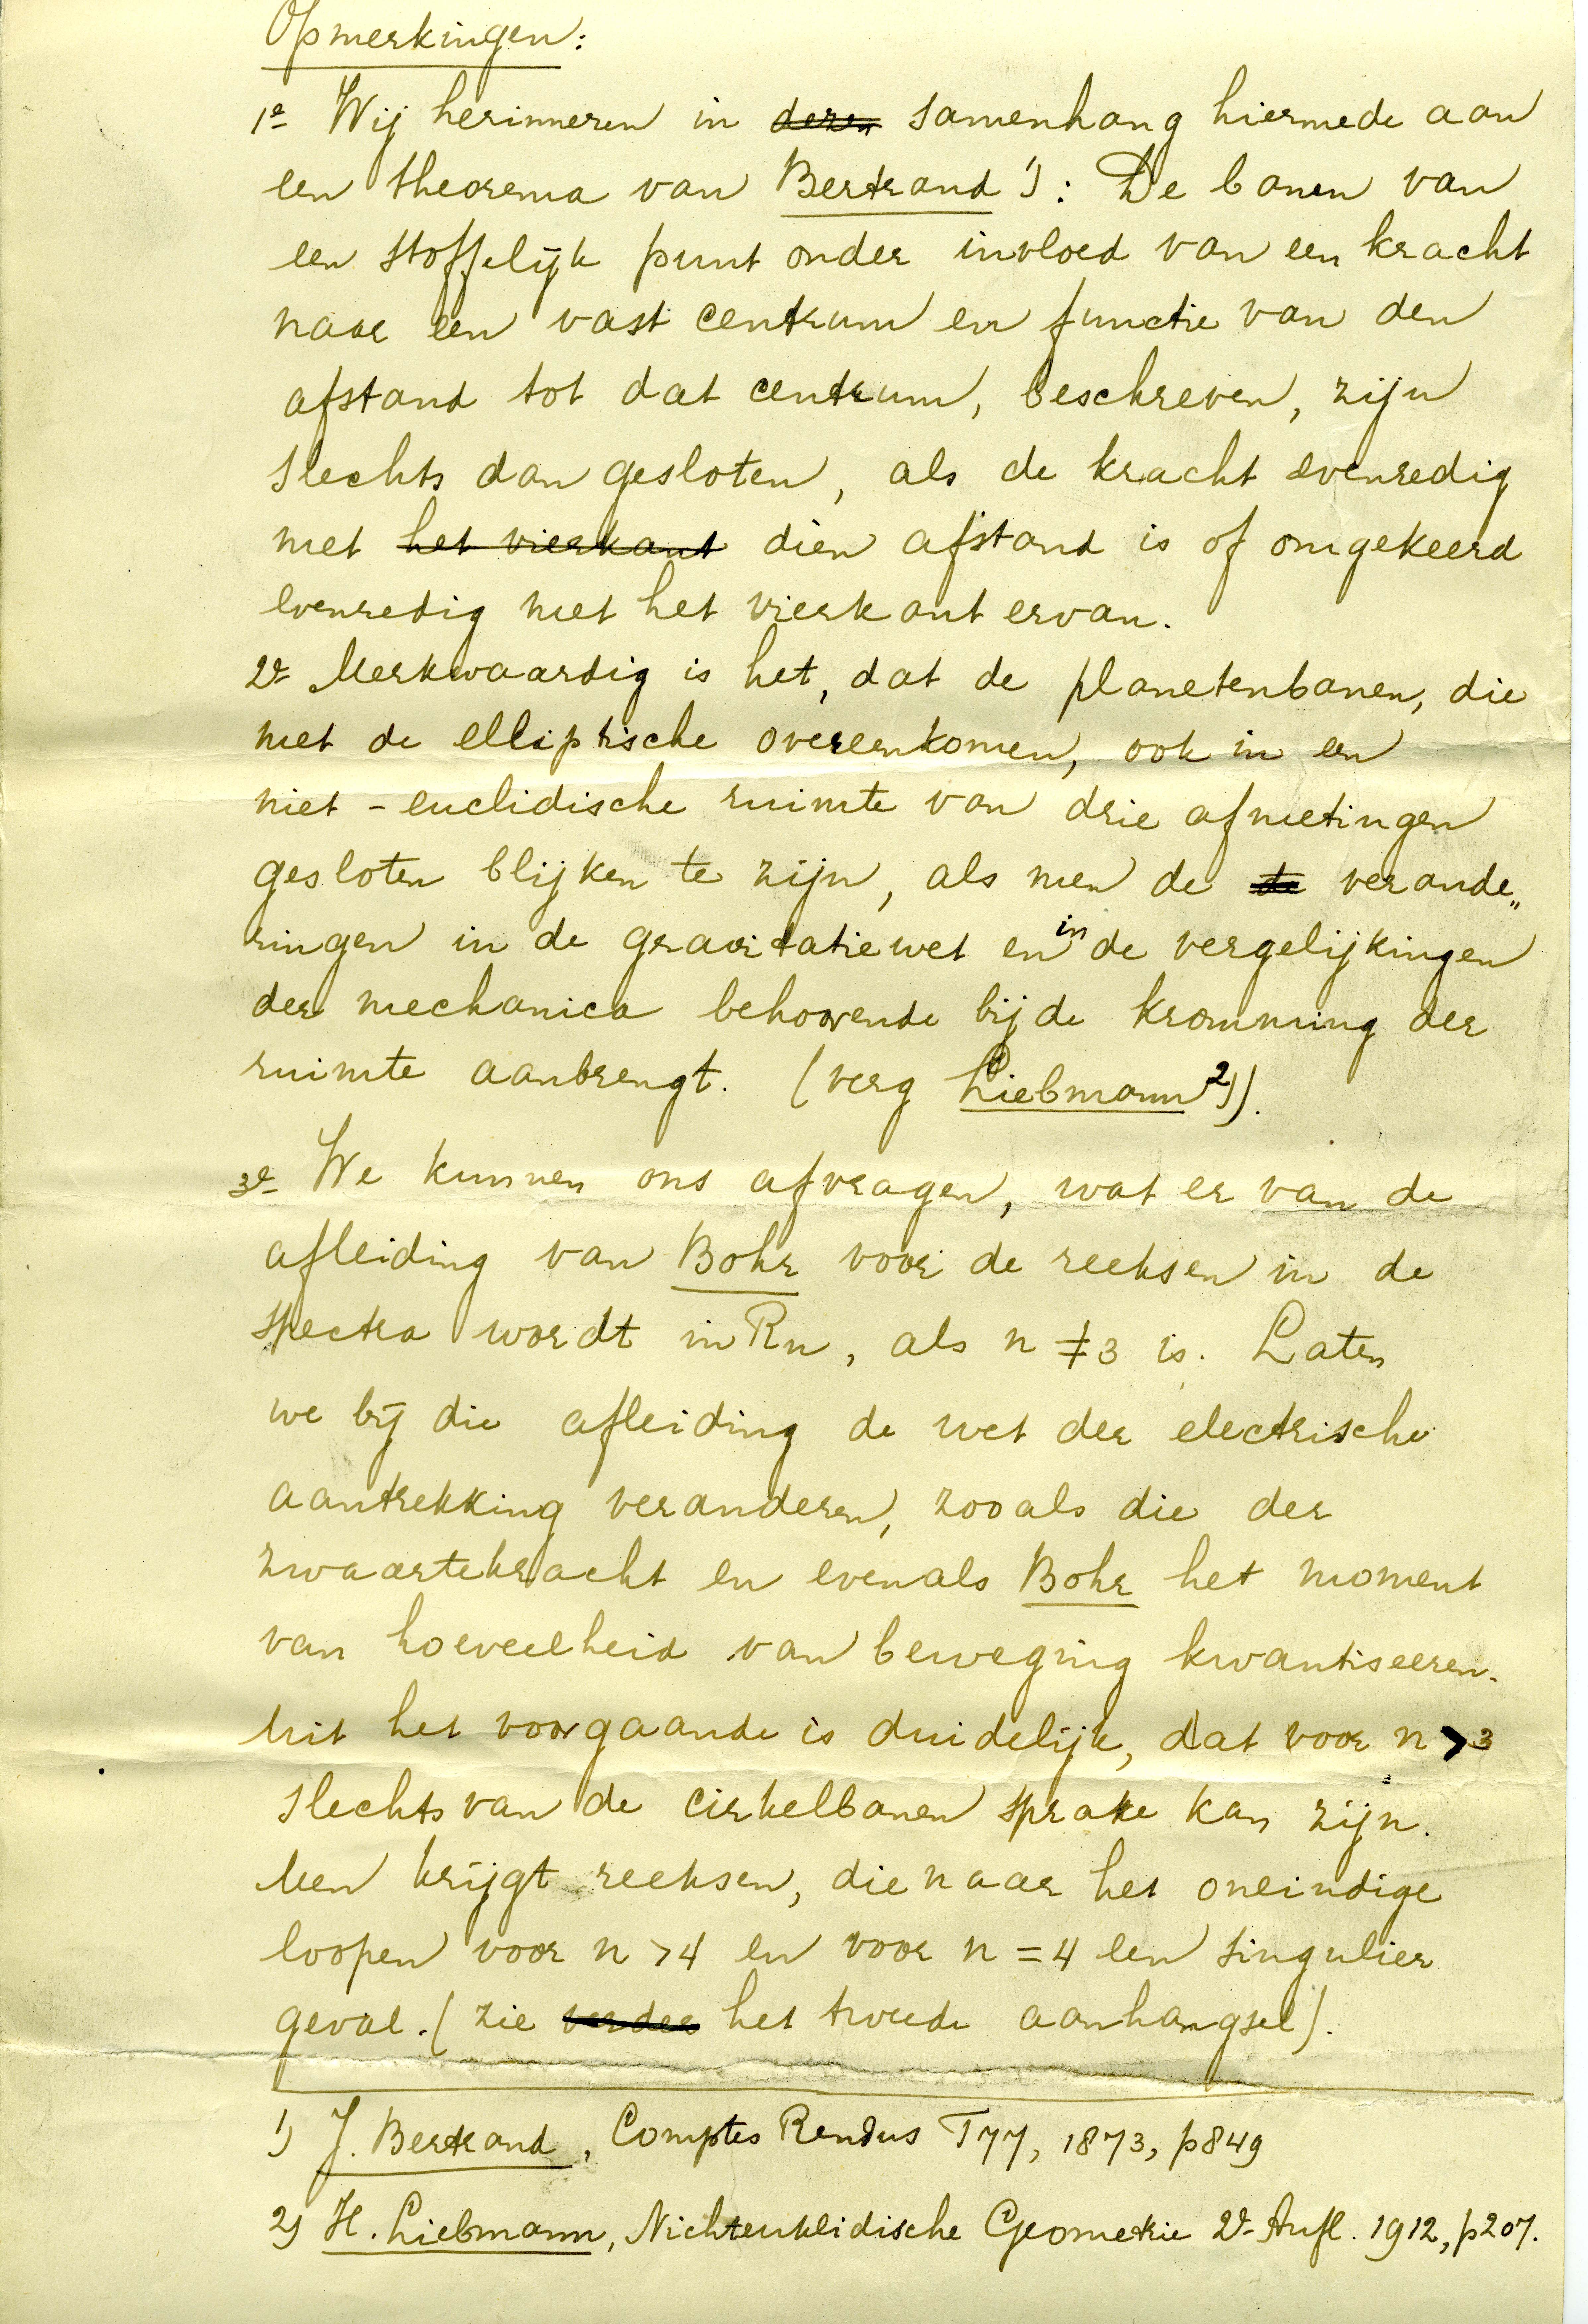 Opmerkingen:
1e Wij herinneren in deren samenhang hiermede aan
een theorema van Bertrand 1): De banen van
een stoffelijk punt onder invloed van een kracht
naar een vast centrum en functie van den
afstand tot dat centrum, beschreven, zijn
slechts dan gesloten, als de kracht evenredig
met het vierkant dien afstand is of omgekeerd
evenredig met het vierkant ervan.
2e Merkwaardig is het, dat de planetenbanen, die
met de elliptische overeenkomen, ook in een
niet-euclidische ruimte van drie afmetingen
gesloten blijken te zijn, als men de de verande„
ringen in de gravitatiewet en in de vergelijkingen
der mechanica behoorende bij de kromming der
ruimte aanbrengt. (verg Liebmann 2)).
3e We kunnen ons afvragen, wat er van de
afleiding van Bohr voor de reeksen in de
spectra wordt in Rn, als n ≠ 3 is. Laten
we bij die afleiding de wet der electrische
aantrekking veranderen, zooals die der
zwaartekracht en evenals Bohr het moment
van hoeveelheid van beweging kwantiseeren.
Uit het voorgaande is duidelijk, dat voor n > 3
slechts van de cirkelbanen sprake kan zijn.
Men krijgt reeksen, die naar het oneindige
loopen voor n > 4 en voor n = 4 een singulier
geval. (zie verder het tweede aanhangsel).
1) J. Bertrand, Comptes Rendus T77, 1873, p849
2) H. Liebmann, Nichteuklidische Geometrie 2e Aufl. 1912, p207.